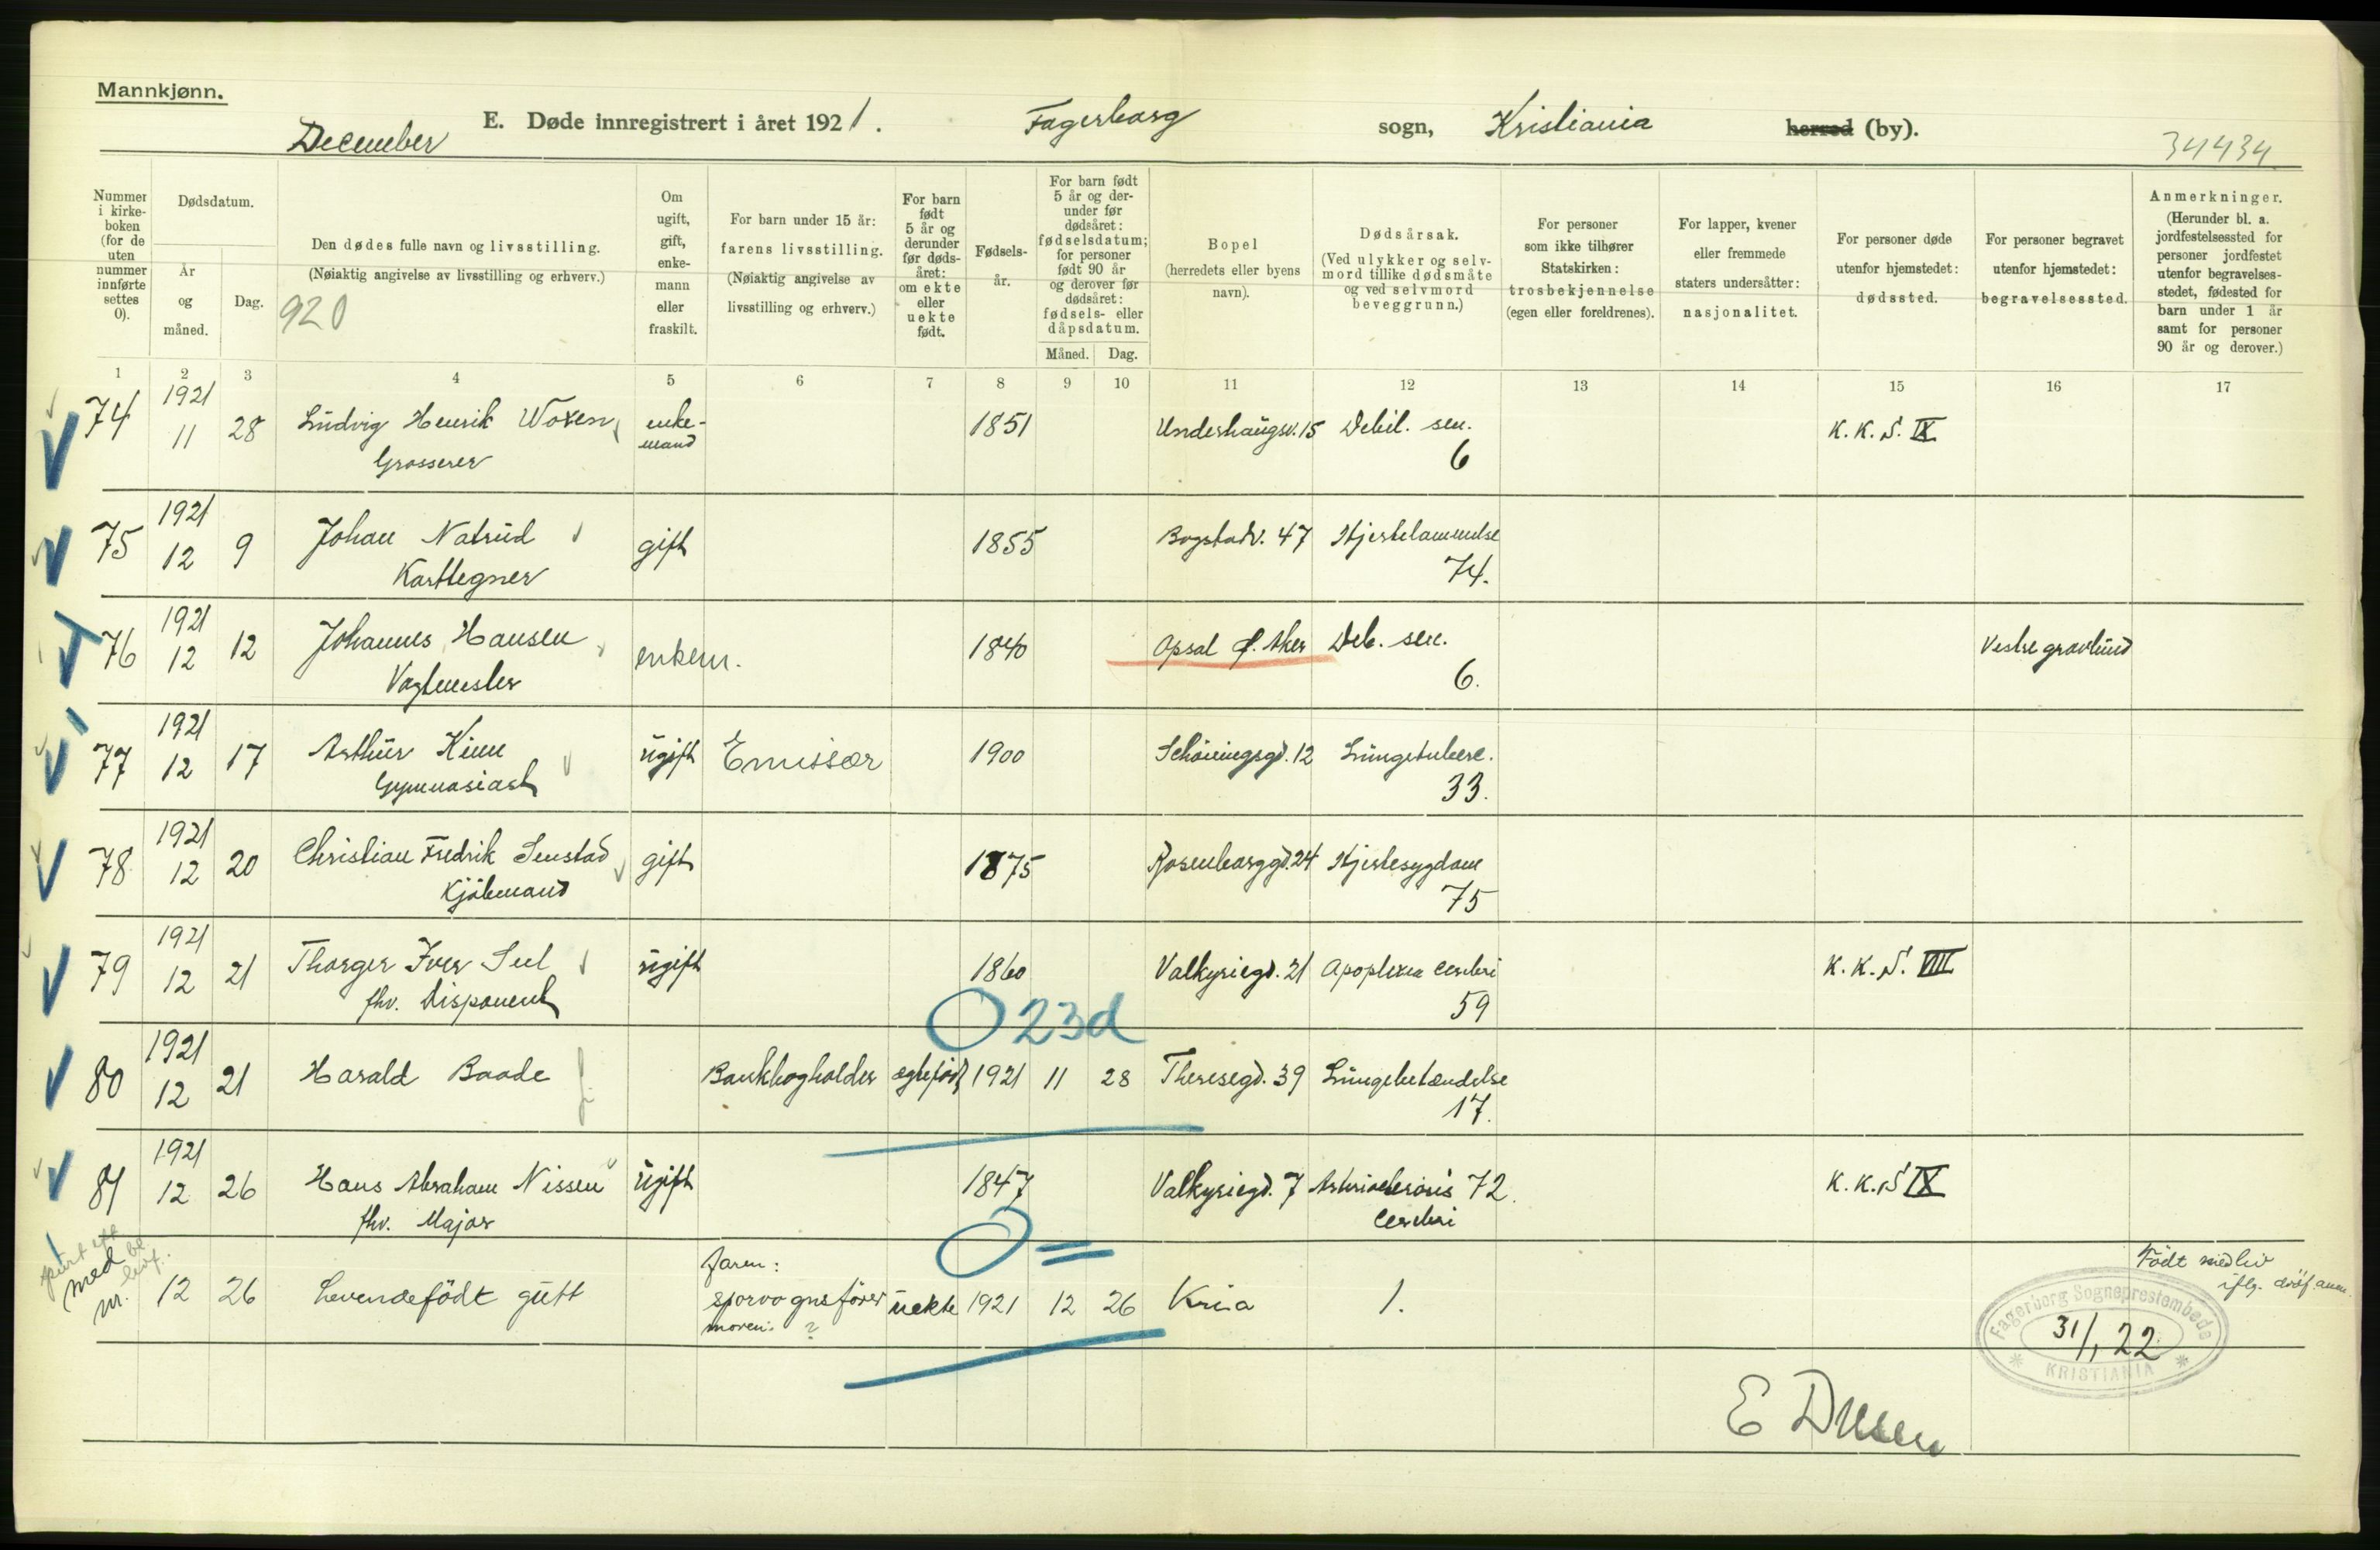 Mannkjønn.
December
E. Døde innregistrert i året 1921.
Fagerborg sogn, Kristiania herred (by).
34434
Nummer i kirke-boken (for de uten nummer innførte settes 0).
Dødsdatum.
År og måned.
Dag.
Den dødes fulle navn og livsstilling.
(Nøiaktig angivelse av livsstilling og erhverv.)
920
Om ugift, gift, enke-mann eller fraskilt.
For barn under 15 år:
farens livsstilling.
(Nøiaktig angivelse av livsstilling og erhverv.)
For barn født 5 år og derunder før døds-året: om ekte eller uekte født.
Fødsels-år.
For barn født 5 år og der-under før dødsåret: fødselsdatum; for personer født 90 år og derover før dødsåret: fødsels- eller dåpsdatum.
Måned. Dag.
Bopel
(herredets eller byens navn).
Dødsårsak.
(Ved ulykker og selv-mord tillike dødsmåte og ved selvmord beveggrunn.)
For personer som ikke tilhører Statskirken:
trosbekjennelse
(egen eller foreldrenes).
For lapper, kvener eller fremmede staters undersåtter:
nasjonalitet.
For personer døde utenfor hjemstedet:
dødssted.
For personer begravet utenfor hjemstedet:
begravelsessted.
Anmerkninger.
(Herunder bl. a. jordfestelsessted for personer jordfestet utenfor begravelses-stedet, fødested for barn under 1 år samt for personer 90 år og derover.)
1 2 3 4 5 6 7 8 9 10 11 12 13 14 15 16 17
74 1921 11 28 Ludvig Henrik Woxen, Grosserer enke-mand 1851 Underhaugsv. 15 Debil. sen. 6 K. K. S. IX
75 1921 12 9 Johan Natrud Karttegner gift 1855 Bogstadv. 47 Hjertelammelse 74.
76 1921 12 12 Johannes Hansen Vagtmester enkem. 1840 Opsal Ø. Aker Deb. sen. 6. Vestre gravlund
77 1921 12 17 Arthur Kinn Gymnasiast ugift Emissær 1900 Schöningsgd. 12 Lungetuberc. 33.
78 1921 12 20 Christian Fredrik Senstad Kjöbmand gift 1875 Rosenborggd. 24 Hjertesygdom 75
79 1921 12 21 Thorger Iver Sul fhv. Disponent ugift 1860 Valkyriegd. 21 Apoplexia cerebri 59 K. K. S. VIII
O 23d
80 1921 12 21 Harald Baade Bankbogholder egtefödt 1921 11 28 Theresegd. 39 Lungebetændelse 17.
81 1921 12 26 Hans Abraham Nissen fhv. Major ugift 1847 Valkyriegd. 7 Arteriosclerosis cerebri 72. K. K. S IX
med nr. 12 26 Levendefödt gutt faren: sporvognsförer moren: ? uekte 1921 12 26 Kria 1. Födt med liv
Fagerborg Sogneprestembede
31/1 22
KRISTIANIA